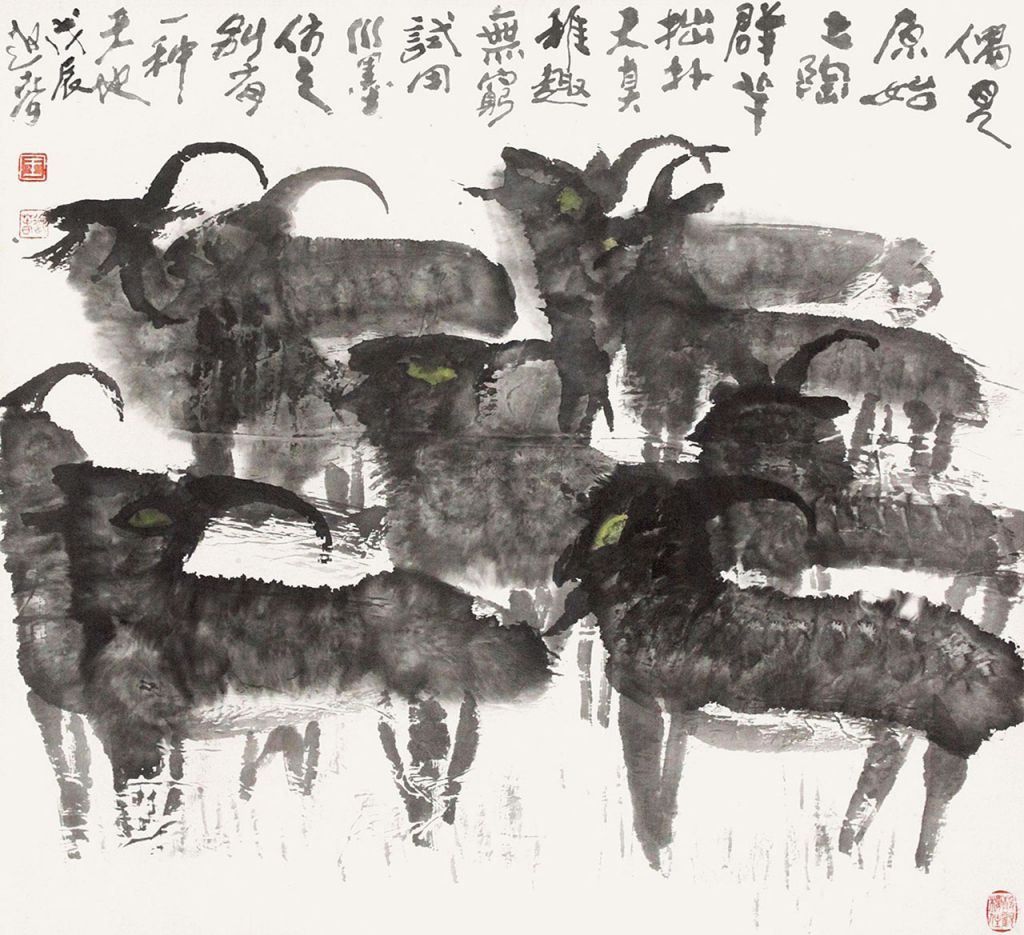 偶見
原始
陶
群羊
拙朴
天真
稚趣
無窮
試用
水墨
仿之
別有
一种
天地
戊辰
王